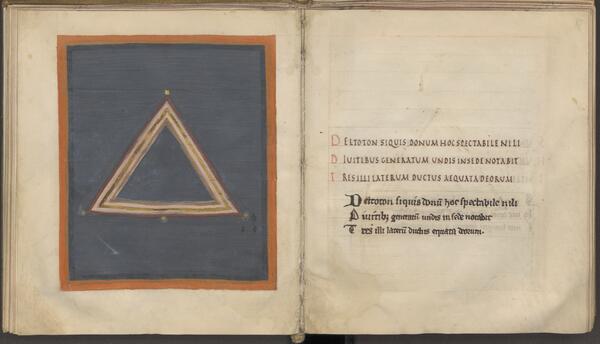 DELTOTON SIQUIS DONUM HOC SPECTABILE NILI
DIUITIBUS GENERATUM UNDIS INSEDE NOTABIT
TRES ILLI LATERUM DUCTUS AEQUATA DEORUM
Deltoton siquis donū hoc spectabile nili
Diuitibꝫ generatū undis in sede notabit
Tres illi laterū ductus equata deorum.